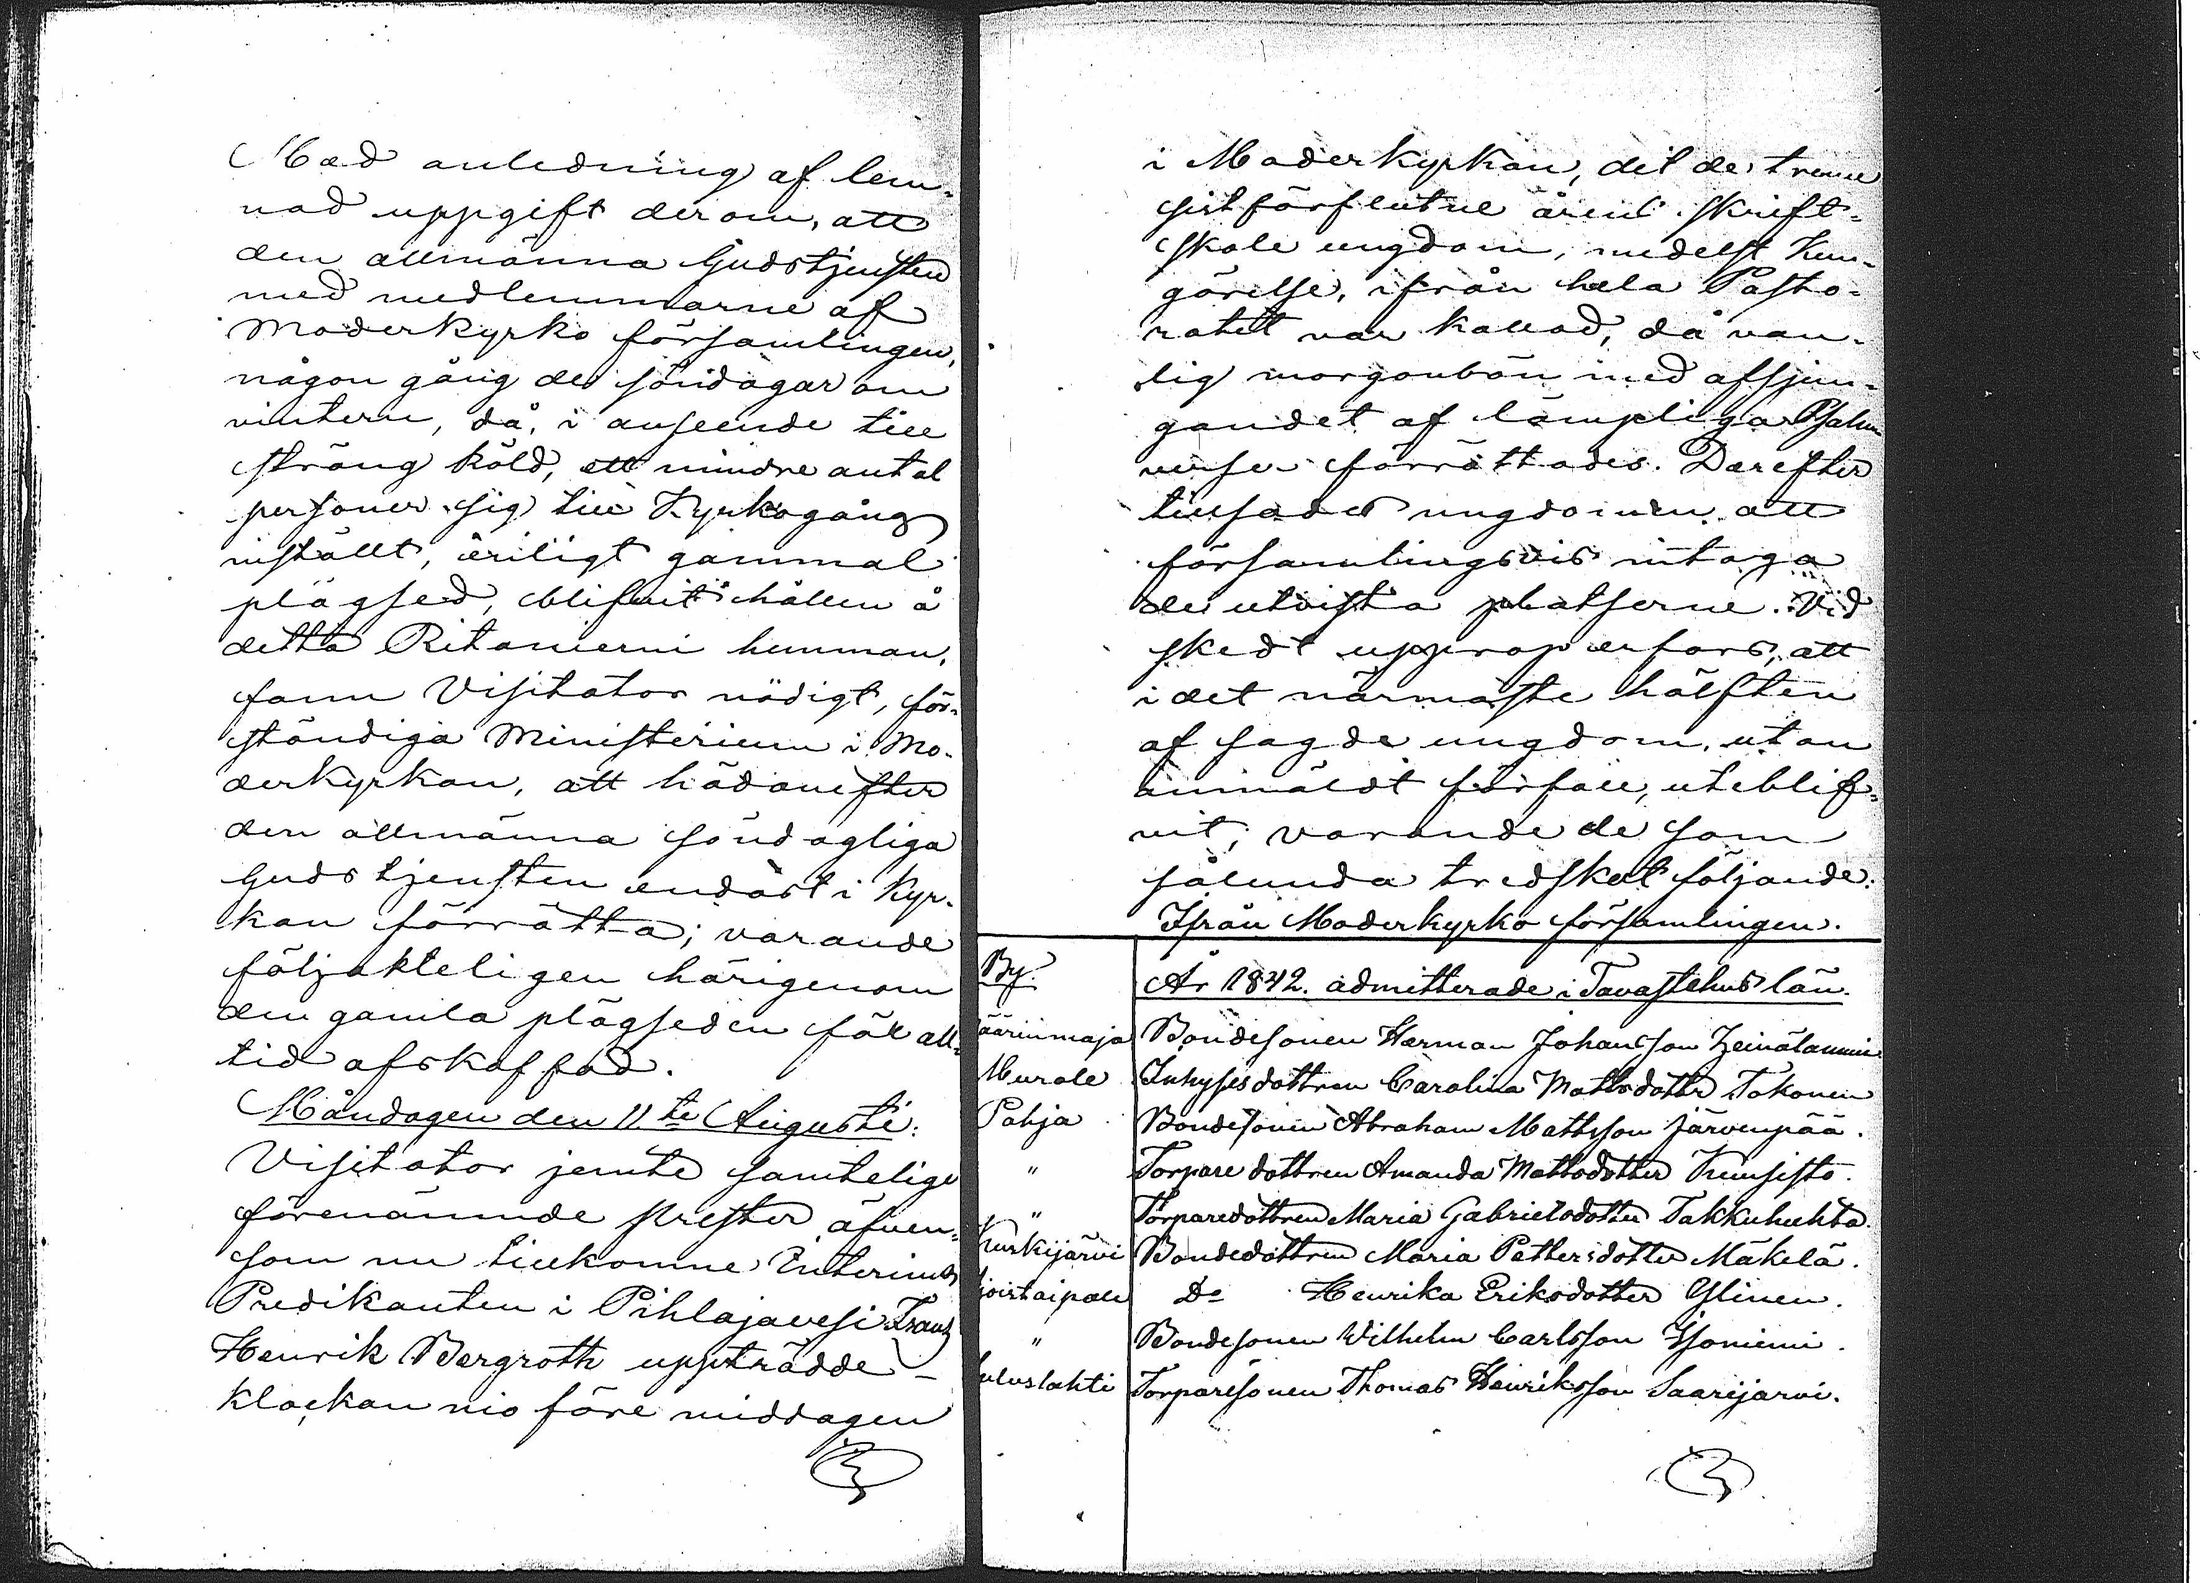 Med anledning af lem-
nad uppgift derom, att
den allmänna Gudstjensten
med medlemmarne af
Moderkyrko församlingen,
någon gång de söndagar om
vintern, då, i anseende till
sträng köld, ett mindre antal
personer sig till Kyrkogång
inställt, enligt gammal
plägsed, blifvit hållen å
detta Ritaniemi hemman,
fann Visitator nödigt, för-
ständiga Ministerium i Mo-
derkyrkan, att hädanefter
den allmänna söndagliga
Gudstjensten endast i Kyr-
kan förrätta; varande
följakteligen härigenom
den gamla plägseden för all-
tid afskaffad.
Måndagen den 11te Augusti.
Visitator jemte samtelige
förenämnde prester äfven-
som nu tillkomne Interims
Predikanten i Pihlajavesi Frans
Henrik Bergroth uppträdde
klockan nio före middagen
i Moderkyrkan, dit de trenne
sistförflutne årens skrift-
skole ungdom, medelst Kun-
görelse, ifrån hela Pasto-
ratet var kallad, då van-
lig morgonbön med afsjun-
gandet af lämpliga Psalm
verser förrättades. Derefter
tillsades ungdomen att
församlingsvis intaga
de utvista platserne. Vid
skedt upprop erfors, att
i det närmaste hälften
af sagde ungdom, utan
anmäldt förfall, uteblif-
vit; varande de som
sålunda tredskat följande:
Ifrån Moderkyrko församlingen.
By. År 1842. admitterade i Tavastehus län.
äärinmaja Bondesonen Herman Johansson
Murole Inhysesdottren Carolina Mattsdotter Tokonen
Pohja Bondesonen Abraham Mattsson Järvenpää.
" Torpare dottren Amanda Mattsdotter Kuusisto.
" Torparedottren Maria Gabrielsdotter Takkuhuhta.
Kurkijärvi Bondedottren Maria Pettersdotter Mäkelä.
joistaipale Do Henrika Eriksdotter Ylinen.
" Bondesonen Wilhelm Carlsson Isoniemi.
uluslahti Torparesonen Thomas Henriksson Saarijärvi.